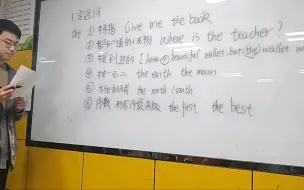 1. 定冠词
the ① 特指 Give me the book
② 都知道的人或物 Where is the teacher?
③ 提到过的 I have a beautiful wallet, but (the) wallet w
④ 独一无二 the earth the moon
⑤ the north / south
⑥ 序数、形容词最高级 the first the best